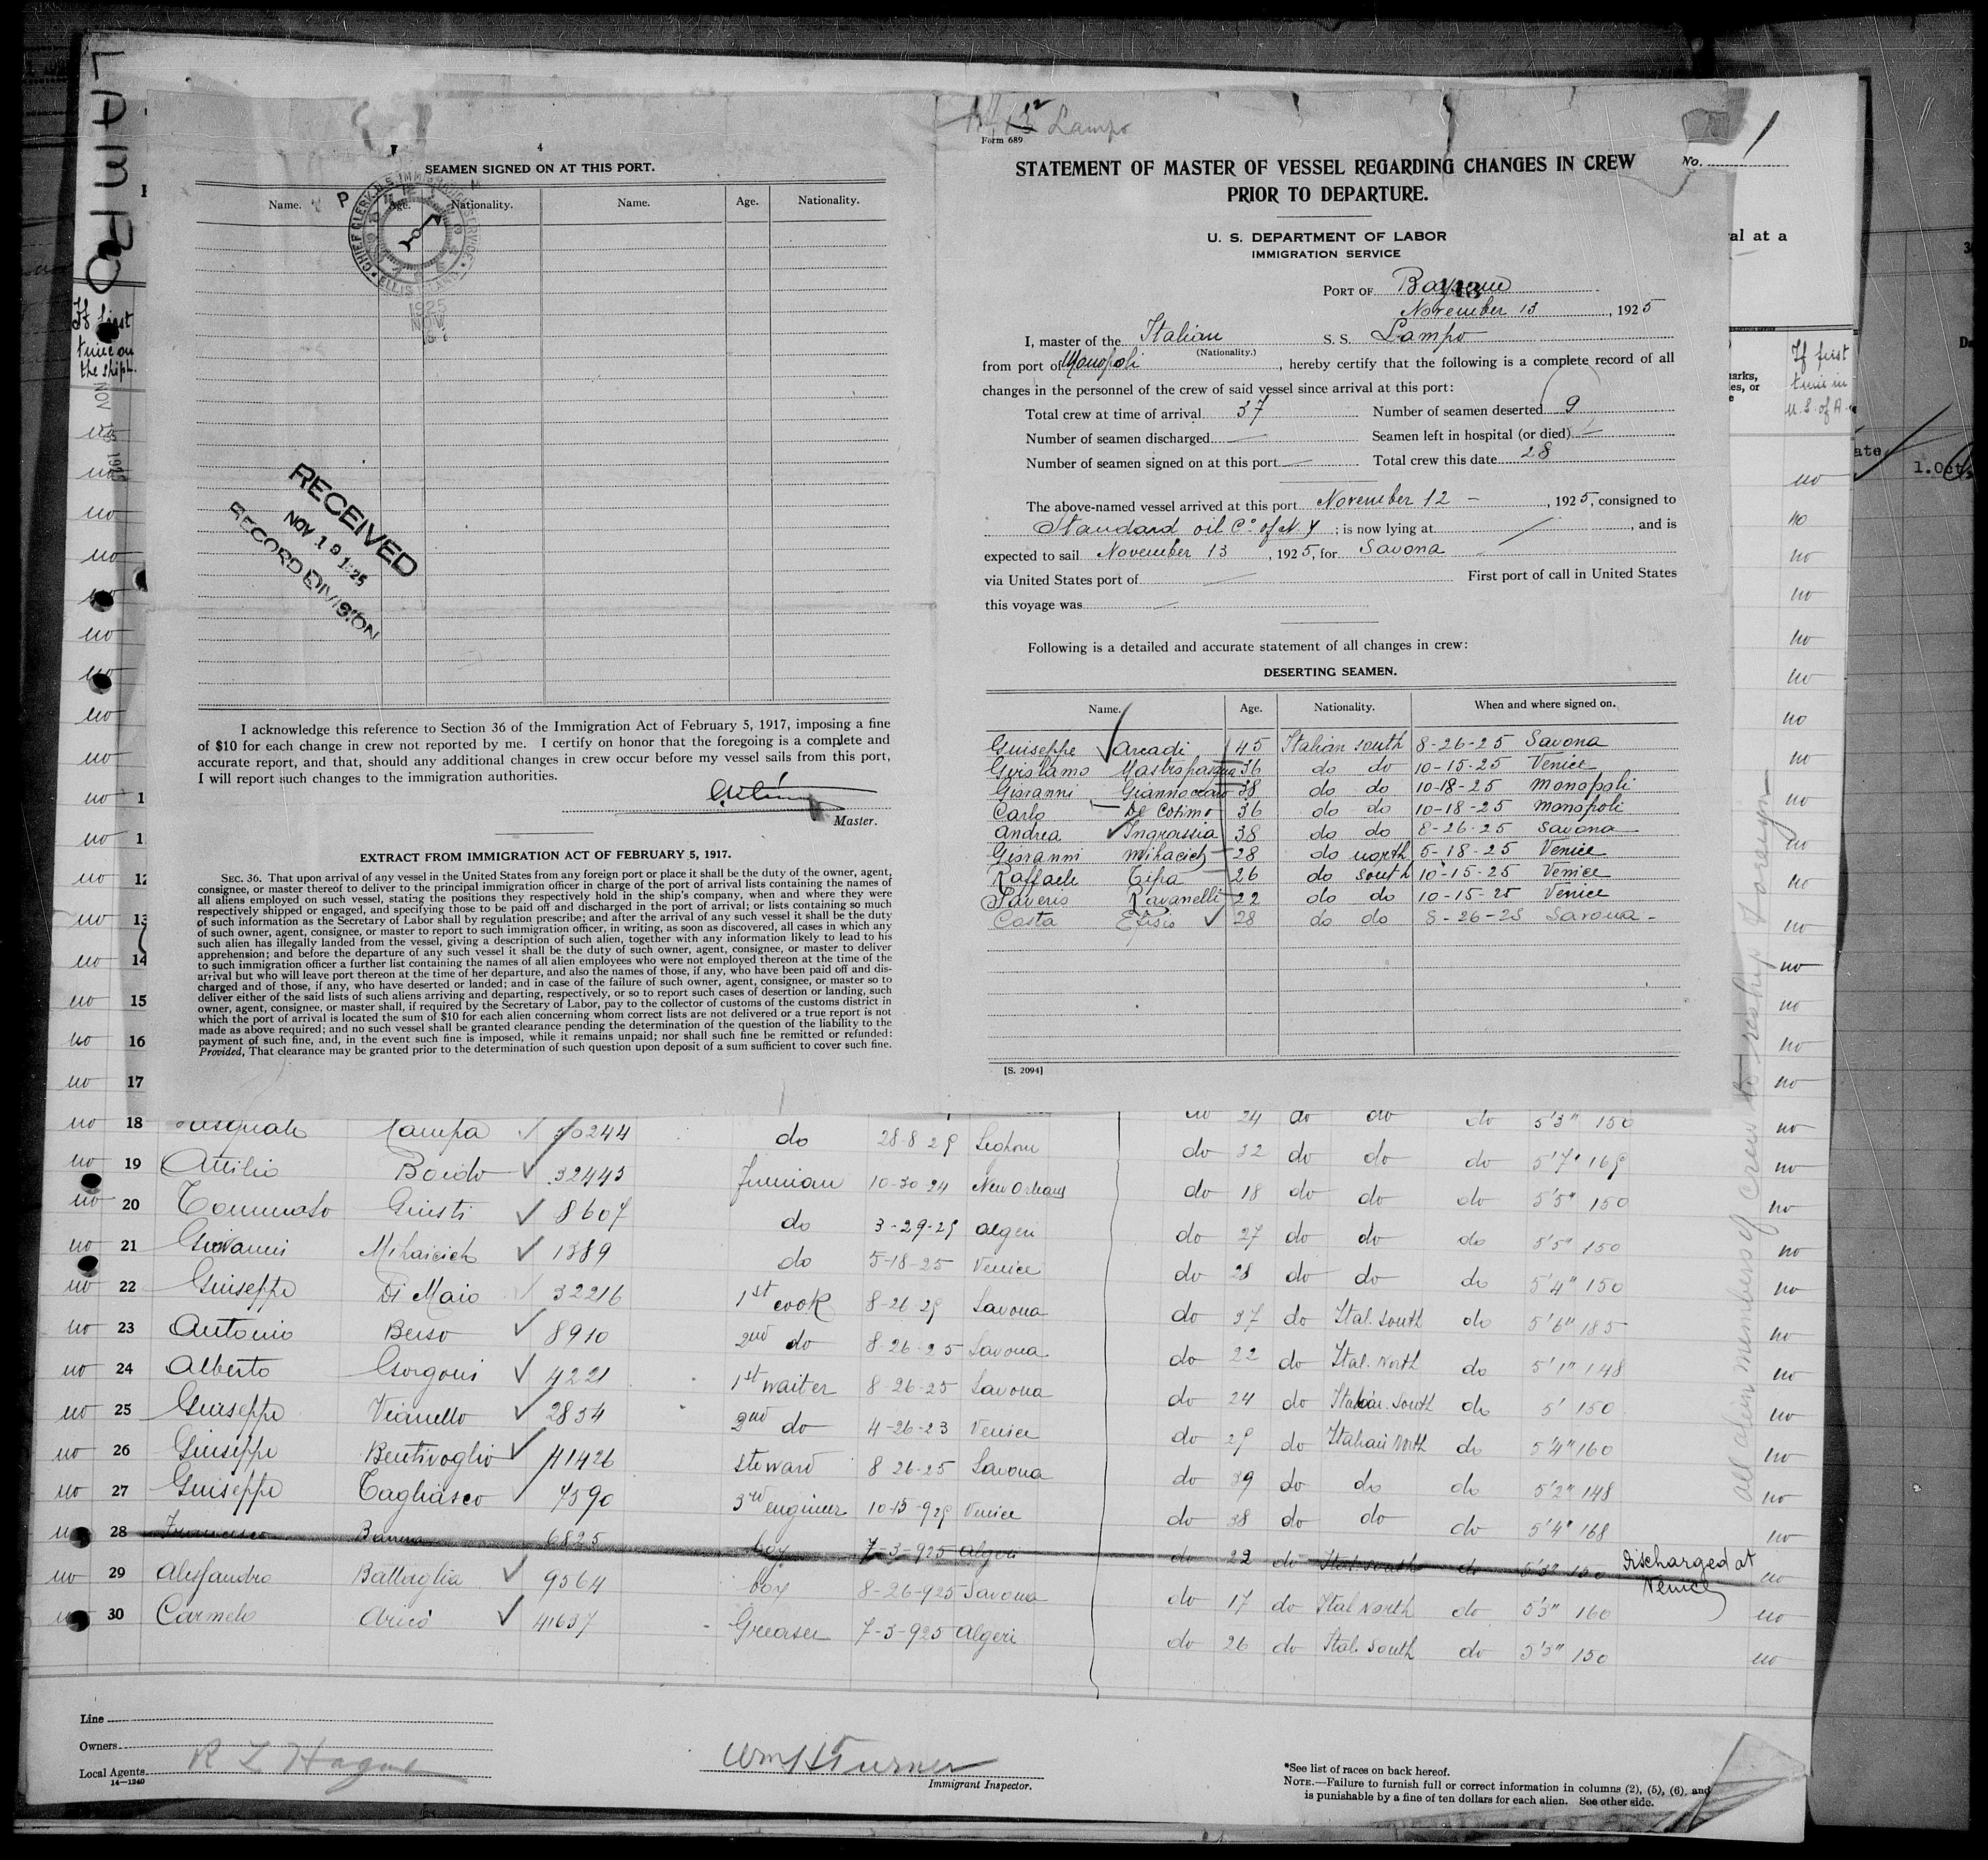 LAMPO
4
SEAMEN SIGNED ON AT THIS PORT.
Name. Age. Nationality. Name. Age. Nationality.
CHIEF CLERK U.S. IMMIGRATION SERVICE
ELLIS ISLAND
1925
NOV
RECEIVED
NOV 19 1925
RECORD DIVISION
I acknowledge this reference to Section 36 of the Immigration Act of February 5, 1917, imposing a fine
of $10 for each change in crew not reported by me. I certify on honor that the foregoing is a complete and
accurate report, and that, should any additional changes in crew occur before my vessel sails from this port,
I will report such changes to the immigration authorities.
Master.
EXTRACT FROM IMMIGRATION ACT OF FEBRUARY 5, 1917.
SEC. 36. That upon arrival of any vessel in the United States from any foreign port or place it shall be the duty of the owner, agent,
consignee, or master thereof to deliver to the principal immigration officer in charge of the port of arrival lists containing the names of
all aliens employed on such vessel, stating the positions they respectively hold in the ship's company, when and where they were
respectively shipped or engaged, and specifying those to be paid off and discharged in the port of arrival; or lists containing so much
of such information as the Secretary of Labor shall by regulation prescribe; and after the arrival of any such vessel it shall be the duty
of such owner, agent, consignee, or master to report to such immigration officer, in writing, as soon as discovered, all cases in which any
such alien has illegally landed from the vessel, giving a description of such alien, together with any information likely to lead to his
apprehension; and before the departure of any such vessel it shall be the duty of such owner, agent, consignee, or master to deliver
to such immigration officer a further list containing the names of all alien employees who were not employed thereon at the time of the
arrival but who will leave port thereon at the time of her departure, and also the names of those, if any, who have been paid off and dis-
charged and of those, if any, who have deserted or landed; and in case of the failure of such owner, agent, consignee, or master so to
deliver either of the said lists of such aliens arriving and departing, respectively, or so to report such cases of desertion or landing, such
owner, agent, consignee, or master shall, if required by the Secretary of Labor, pay to the collector of customs of the customs district in
which the port of arrival is located the sum of $10 for each alien concerning whom correct lists are not delivered or a true report is not
made as above required; and no such vessel shall be granted clearance pending the determination of the question of the liability to the
payment of such fine, and, in the event such fine is imposed, while it remains unpaid; nor shall such fine be remitted or refunded:
Provided, That clearance may be granted prior to the determination of such question upon deposit of a sum sufficient to cover such fine.
Lampo
Form 689
STATEMENT OF MASTER OF VESSEL REGARDING CHANGES IN CREW
PRIOR TO DEPARTURE.
U. S. DEPARTMENT OF LABOR
IMMIGRATION SERVICE
PORT OF Bayonne
November 13, 1925
I, master of the Italian S. S. Lampo
(Nationality.)
from port of Monopoli, hereby certify that the following is a complete record of all
changes in the personnel of the crew of said vessel since arrival at this port:
Total crew at time of arrival 37 Number of seamen deserted 9
Number of seamen discharged — Seamen left in hospital (or died) —
Number of seamen signed on at this port — Total crew this date 28
The above-named vessel arrived at this port November 12 -, 1925, consigned to
Standard oil Co of N. Y; is now lying at, and is
expected to sail November 13, 1925, for Savona
via United States port of — First port of call in United States
this voyage was —
Following is a detailed and accurate statement of all changes in crew:
DESERTING SEAMEN.
Name. Age. Nationality. When and where signed on.
Guiseppe Arcadi 45 Italian south 8-26-25 Savona
Girolamo Mastropasqua 36 do do 10-15-25 Venice
Giovanni Giannoccaro 38 do do 10-18-25 monopoli
Carlo De Cosimo 36 do do 10-18-25 monopoli
Andrea Ingrassia 38 do do 8-26-25 Savona
Giovanni Mihacich 28 do north 5-18-25 Venice
Raffaele Cipa 26 do south 10-15-25 Venice
Saverio Ravanelli 22 do do 10-15-25 Venice
Costa Efisio 28 do do 8-26-25 Savona -
[S. 2094]
No. 1
al at a
If first
time on
the ship.
If first
time in
U.S. of A.
1. Oct.
all alien members of crew to reship foreign
18 Pasquale Campa 50244 do 28-8-25 Leghorn do 24 do do do 5'3" 150 no
19 Attilio Boido 32445 Fireman 10-30-24 New Orleans do 32 do do do 5'7" 165 no
20 Tommaso Giusti 8607 do 3-29-25 algeri do 18 do do do 5'5" 150 no
21 Giovanni Mihaicich 1389 do 5-18-25 Venice do 27 do do do 5'5" 150 no
22 Guiseppe Di Maio 32216 1st cook 8-26-25 Savona do 28 do do do 5'4" 150 no
23 Antonio Berso 8910 2nd do 8-26-25 Savona do 37 do Ital. South do 5'6" 185 no
24 Alberto Gorgoni 4221 1st waiter 8-26-25 Savona do 22 do Ital. North do 5'1" 148 no
25 Guiseppe Vianello 2834 2nd do 4-26-23 Venice do 24 do Italian South do 5' 150 no
26 Guiseppe Bentivoglio 41426 steward 8-26-25 Savona do 25 do Italian North do 5'4" 160 no
27 Guiseppe Tagliasco 7590 3rd engineer 10-15-925 Venice do 39 do do do 5'2" 148 no
28 Francesco 6825 boy 7-3-925 Algeri do 38 do do do 5'4" 168 no
29 Alessandro Battaglia 9564 boy 8-26-925 Savona do 22 do Ital. South do 5'3" 150 Discharged at Venice no
30 Carmelo Aricò 41637 Greaser 7-3-925 Algeri do 17 do Ital North do 5'5" 160 no
do 26 do Ital. South do 5'5" 150 no
Line
Owners
Local Agents R L Hague
14—1240
Wm H Turner
Immigrant Inspector.
*See list of races on back hereof.
NOTE.—Failure to furnish full or correct information in columns (2), (5), (6), and
is punishable by a fine of ten dollars for each alien. See other side.